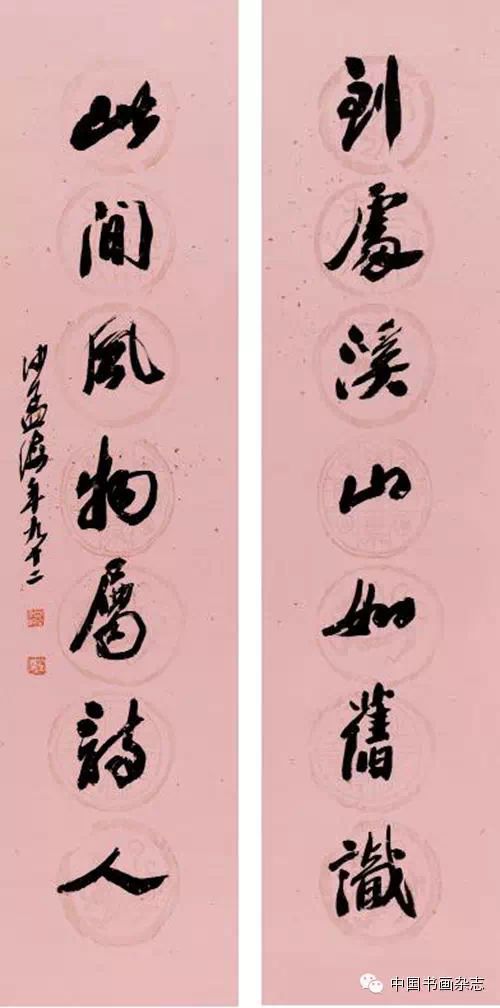 到處溪山如舊識
此間風物屬詩人
沙孟海年九十二
中国书画杂志